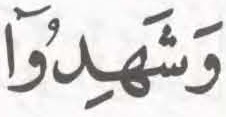 وَشَهِدُوٓا